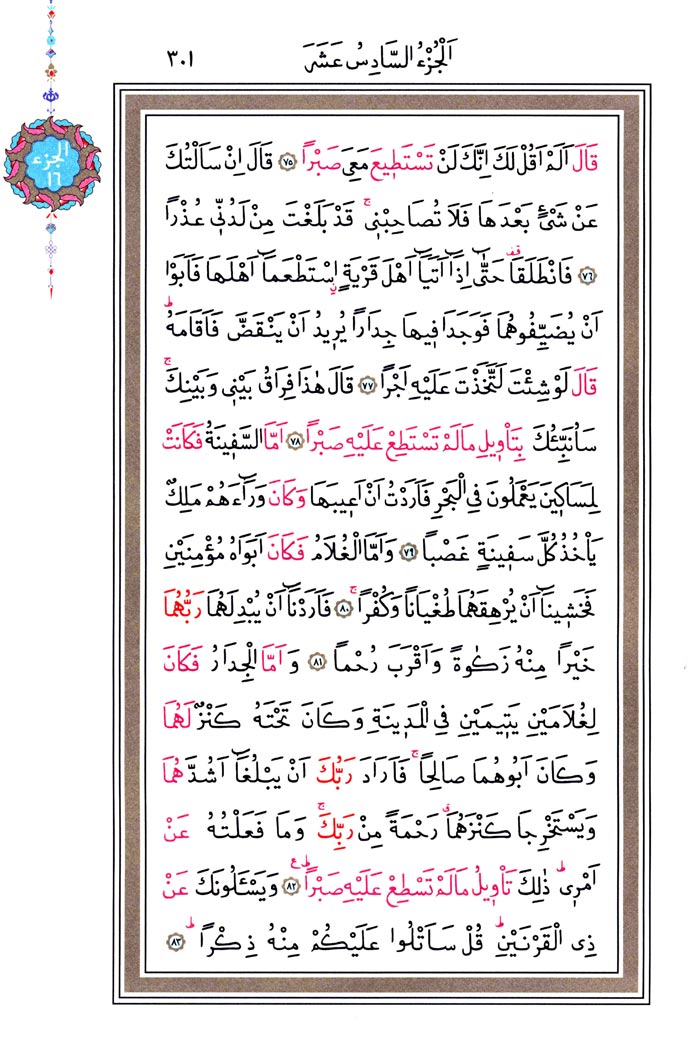 اَلْجُزْءُ السَّادِسُ عَشَرَ
٣٠١
الجزء
١٦
قَالَ اَلَمْ اَقُلْ لَكَ اِنَّكَ لَنْ تَسْتَط۪يعَ مَعِيَ صَبْرًا ﴿٧٥﴾ قَالَ اِنْ سَاَلْتُكَ
عَنْ شَيْءٍ بَعْدَهَا فَلَا تُصَاحِبْن۪يۚ قَدْ بَلَغْتَ مِنْ لَدُنّ۪ي عُذْرًا
﴿٧٦﴾ فَانْطَلَقَا۠ حَتّٰٓى اِذَٓا اَتَيَٓا اَهْلَ قَرْيَةٍۨ اسْتَطْعَمَٓا اَهْلَهَا فَاَبَوْا
اَنْ يُضَيِّفُوهُمَا فَوَجَدَا ف۪يهَا جِدَارًا يُر۪يدُ اَنْ يَنْقَضَّ فَاَقَامَهُۜ
قَالَ لَوْ شِئْتَ لَتَّخَذْتَ عَلَيْهِ اَجْرًا ﴿٧٧﴾ قَالَ هٰذَا فِرَاقُ بَيْن۪ي وَبَيْنِكَۚ
سَاُنَبِّئُكَ بِتَأْو۪يلِ مَا لَمْ تَسْتَطِعْ عَلَيْهِ صَبْرًا ﴿٧٨﴾ اَمَّا السَّف۪ينَةُ فَكَانَتْ
لِمَسَاك۪ينَ يَعْمَلُونَ فِي الْبَحْرِ فَاَرَدْتُ اَنْ اَع۪يبَهَا وَكَانَ وَرَٓاءَهُمْ مَلِكٌ
يَأْخُذُ كُلَّ سَف۪ينَةٍ غَصْبًا ﴿٧٩﴾ وَاَمَّا الْغُلَامُ فَكَانَ اَبَوَاهُ مُؤْمِنَيْنِ
فَخَش۪ينَٓا اَنْ يُرْهِقَهُمَا طُغْيَانًا وَكُفْرًاۚ ﴿٨٠﴾ فَاَرَدْنَٓا اَنْ يُبْدِلَهُمَا رَبُّهُمَا
خَيْرًا مِنْهُ زَكٰوةً وَاَقْرَبَ رُحْمًا ﴿٨١﴾ وَاَمَّا الْجِدَارُ فَكَانَ
لِغُلَامَيْنِ يَت۪يمَيْنِ فِي الْمَد۪ينَةِ وَكَانَ تَحْتَهُ كَنْزٌ لَهُمَا
وَكَانَ اَبُوهُمَا صَالِحًاۚ فَاَرَادَ رَبُّكَ اَنْ يَبْلُغَٓا اَشُدَّهُمَا
وَيَسْتَخْرِجَا كَنْزَهُمَاۗ رَحْمَةً مِنْ رَبِّكَۚ وَمَا فَعَلْتُهُ عَنْ
اَمْر۪يۜ ذٰلِكَ تَأْو۪يلُ مَا لَمْ تَسْطِعْ عَلَيْهِ صَبْرًاۜ ﴿٨٢﴾ وَيَسْـَٔلُونَكَ عَنْ
ذِي الْقَرْنَيْنِۜ قُلْ سَاَتْلُوا عَلَيْكُمْ مِنْهُ ذِكْرًاۜ ﴿٨٣﴾